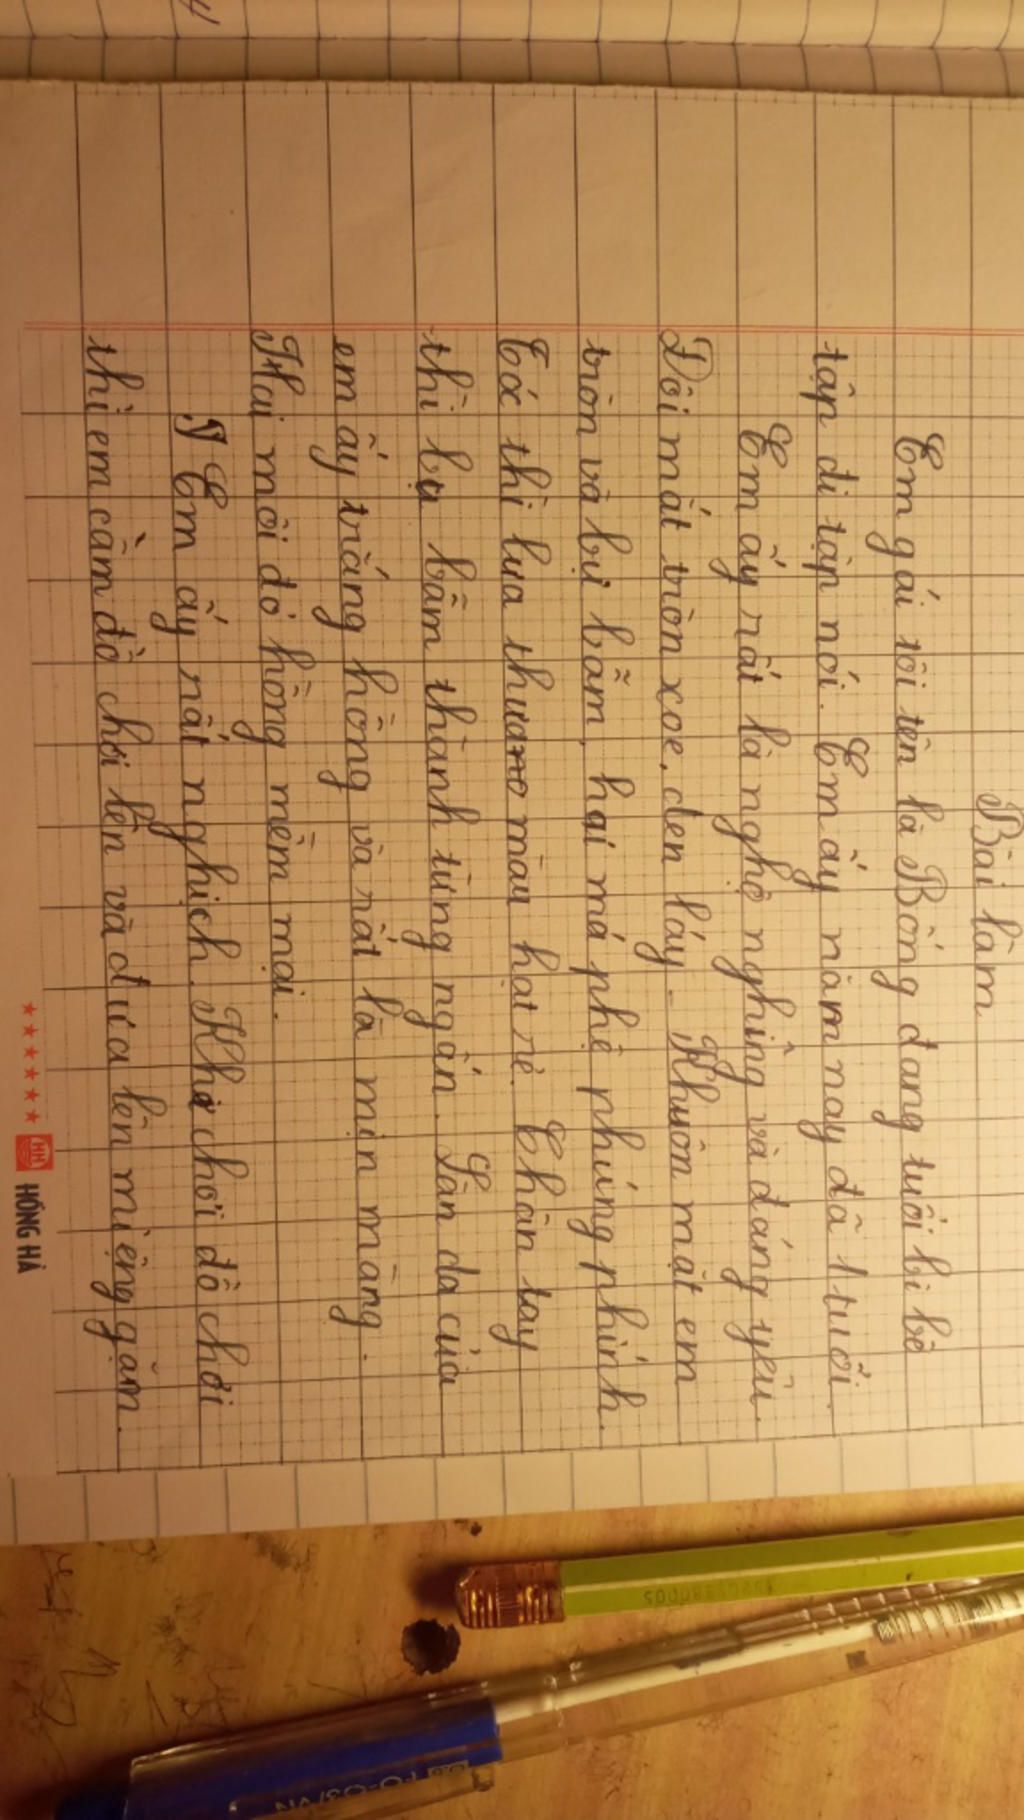 Bài làm
Em gái tôi tên là Bống đang tuổi bi bê
tập đi tập nói. Em ấy năm nay đã 1 tuổi.
Em ấy rất là nghộ nghĩnh và đáng yêu.
Đôi mắt tròn xoe, đen láy. Khuôn mặt em
tròn và bụ bẫm, hai má phệ phúng phính.
Tóc thì lưa thưa màu hạt rẻ. Chân tay
thì bụ bẫm thành từng ngấn. Làn da của
em ấy trắng hồng và rất là mịn màng.
Hai môi đỏ hồng mềm mại.
Em ấy rất nghịch. Khi chơi đồ chơi
thì em cầm đồ chơi lên và đưa lên miệng gặm.
HỒNG HÀ